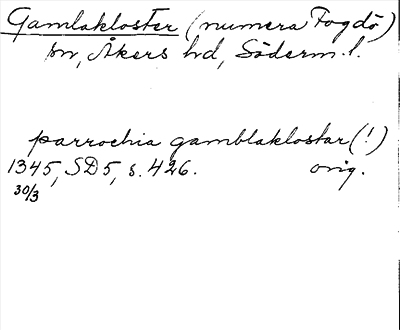 Gamlakloster (numera Fogdö)
sn, Åkers hd, Söderm. l.
parrochia gamblaklostar (!)
1345, SD5, s. 426. orig.
30/3